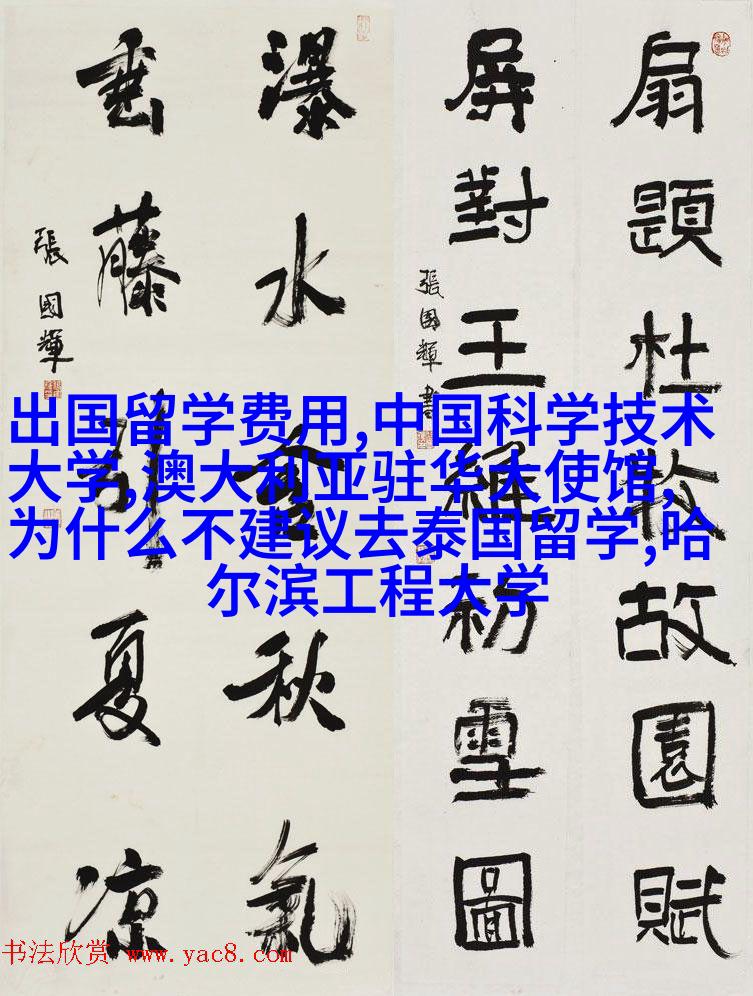 扇題杜牧故園賦
屏對王維初雪圖
張國輝書
瀑水含秋氣
垂藤引夏凉
張國輝
出国留学费用,中国科学技术
大学,澳大利亚驻华大使馆,
为什么不建议去泰国留学,哈
尔滨工程大学
书法欣赏 www.yac8.com